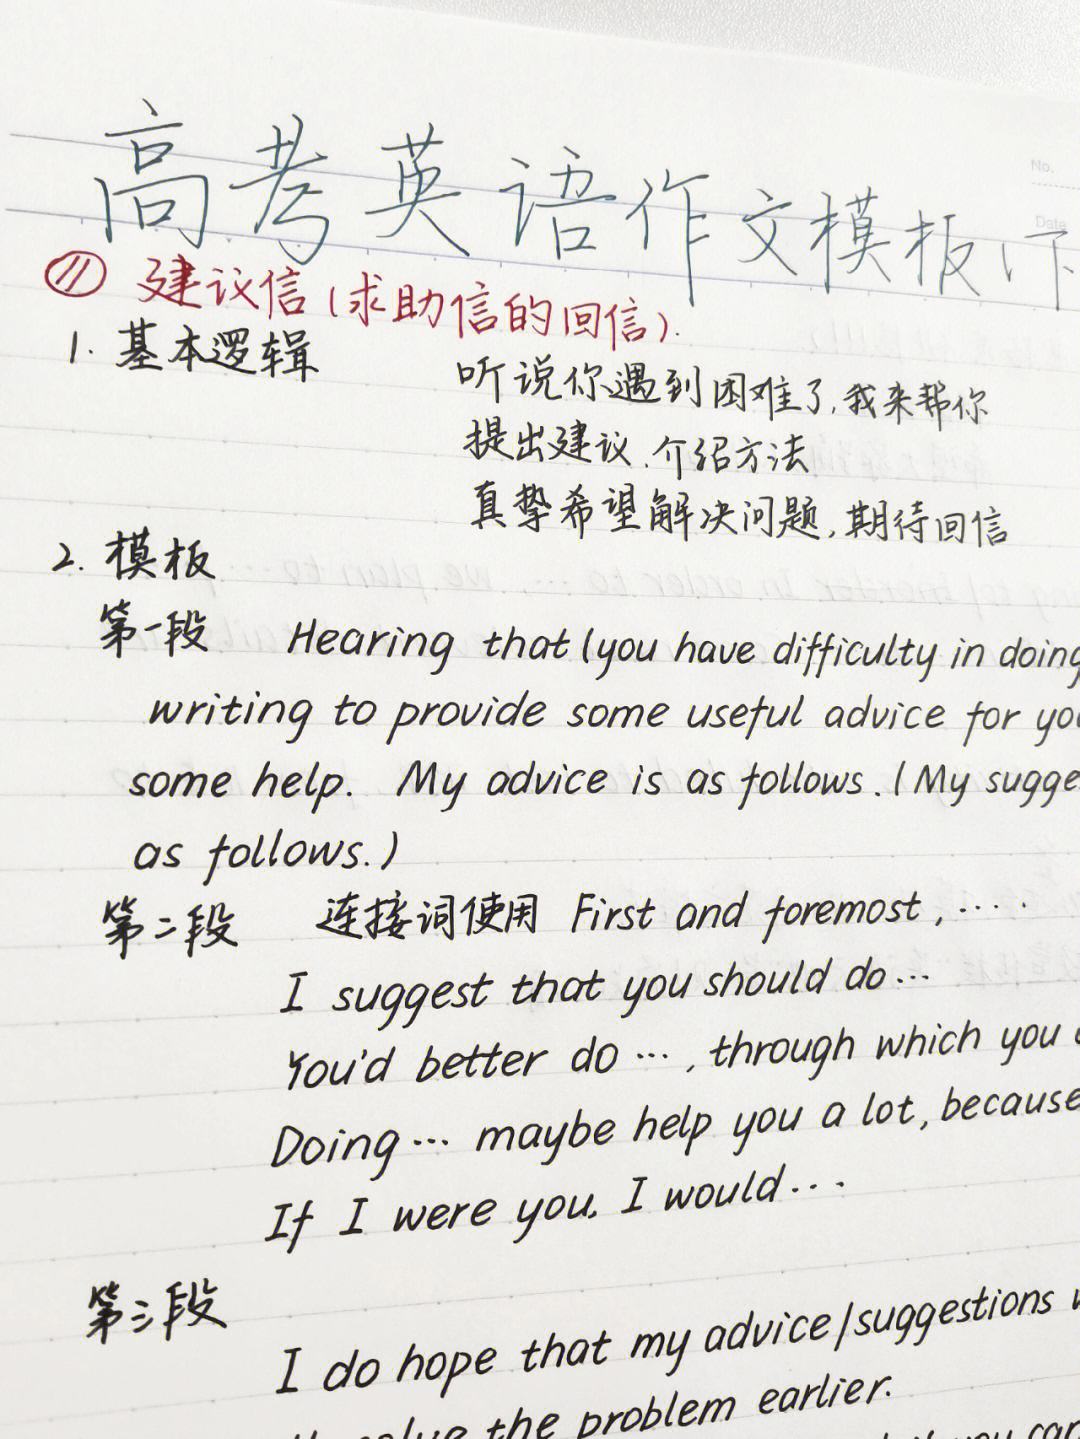 No.
Date
高考英语作文模板(下
⑪ 建议信(求助信的回信).
1. 基本逻辑
听说你遇到困难了,我来帮你
提出建议.介绍方法
真挚希望解决问题,期待回信
2. 模板
第一段 Hearing that (you have difficulty in doing
writing to provide some useful advice for you
some help. My advice is as follows. (My sugge
as follows.)
第二段 连接词使用 First and foremost, ....
I suggest that you should do...
You'd better do ..., through which you
Doing ... maybe help you a lot, because
If I were you. I would...
第三段
I do hope that my advice/suggestions
the problem earlier.
you can